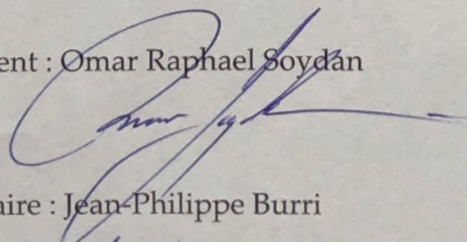 ent : Omar Raphael Soydan
aire : Jean-Philippe Burri